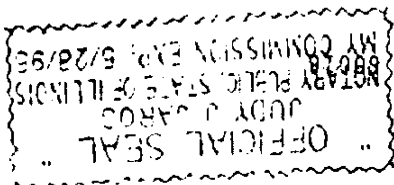 " OFFICIAL SEAL "
JUDY J. JAROS
NOTARY PUBLIC, STATE OF ILLINOIS
MY COMMISSION EXP. 5/28/95